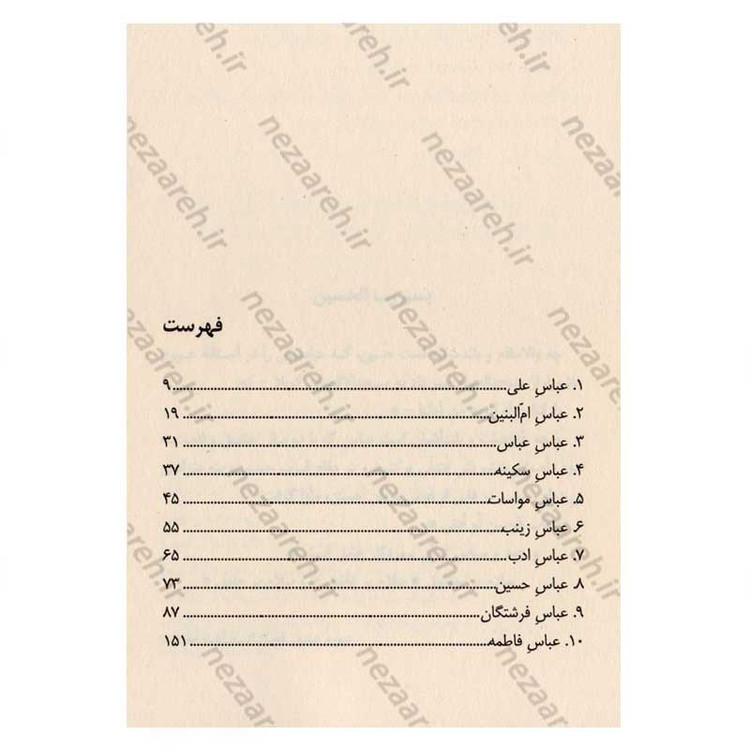 فهرست
۱. عباسِ علی ........ ۹
۲. عباسِ امّ‌البنین ........ ۱۹
۳. عباسِ عباس ........ ۳۱
۴. عباسِ سکینه ........ ۳۷
۵. عباسِ مواسات ........ ۴۵
۶. عباسِ زینب ........ ۵۵
۷. عباسِ ادب ........ ۶۵
۸. عباسِ حسین ........ ۷۳
۹. عباسِ فرشتگان ........ ۸۷
۱۰. عباسِ فاطمه ........ ۱۵۱
nezaareh.ir